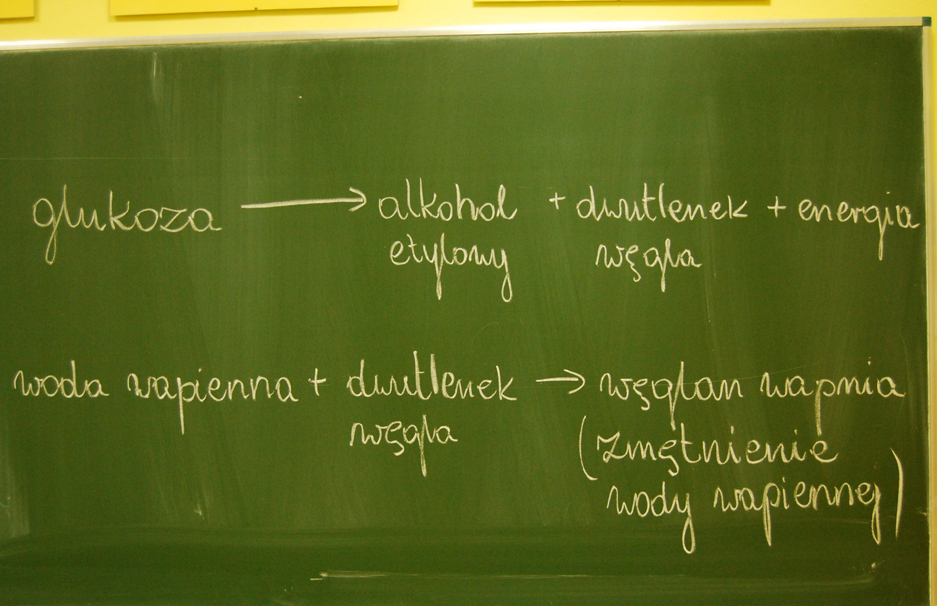 glukoza → alkohol + dwutlenek + energia
etylowy węgla
woda wapienna + dwutlenek → węglan wapnia
węgla (zmętnienie
wody wapiennej)